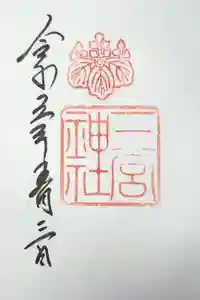 一宮
神社
令和五年壱月三日